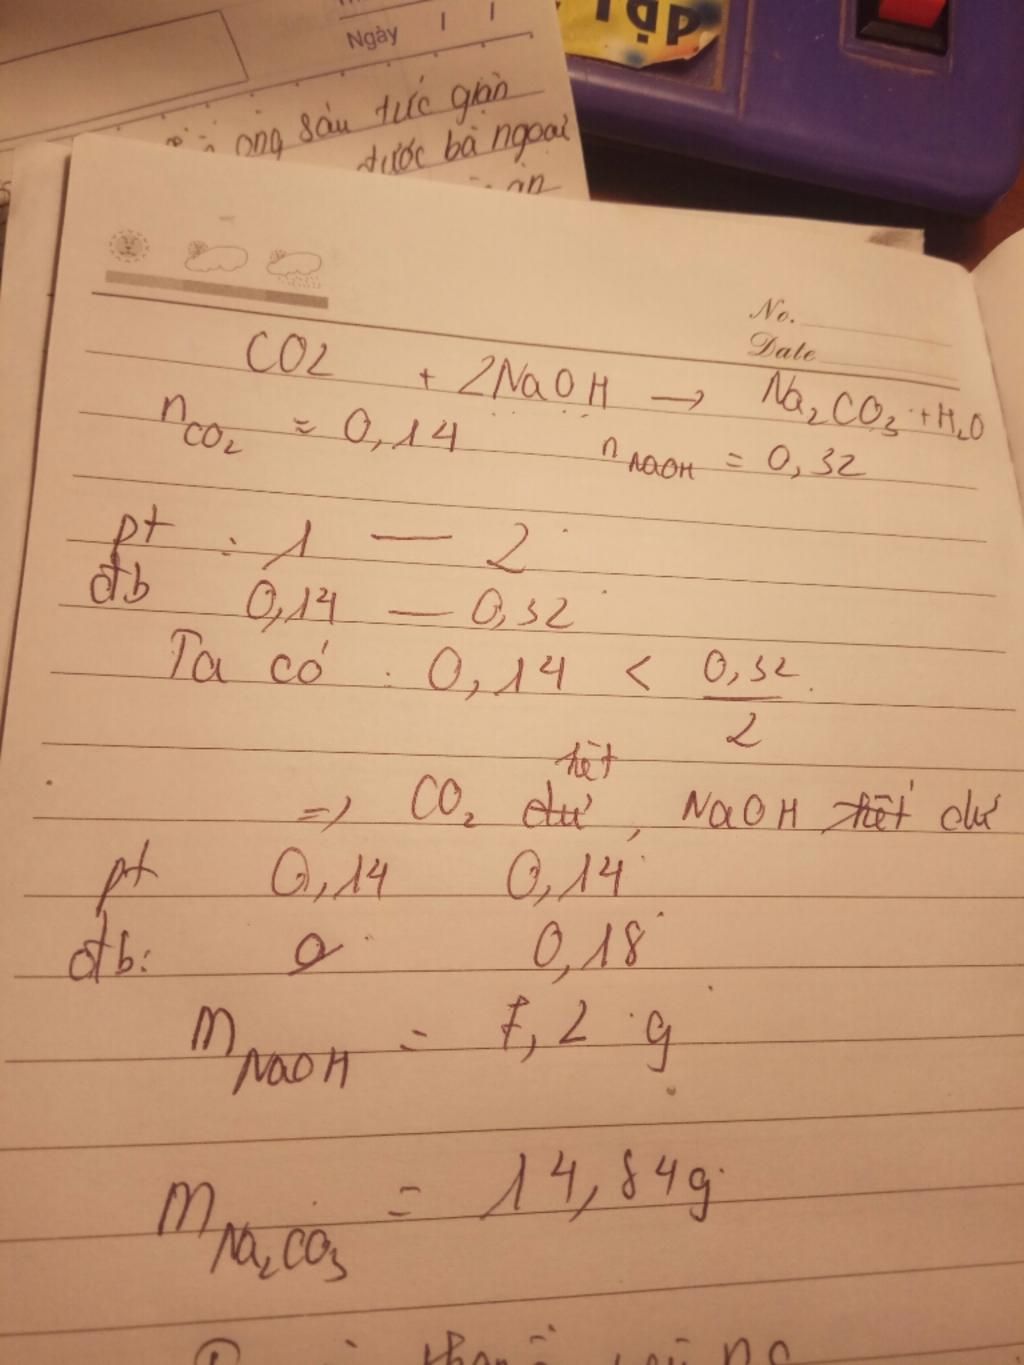 Ngày
ông sáu tức giận
được bà ngoại
ăn
No.
Date
CO2 + 2NaOH → Na₂CO₃ + H₂O
nCO₂ = 0,14 nNaOH = 0,32
pt : 1 — 2
đb 0,14 — 0,32
Ta có : 0,14 < 0,32/2
hết
=> CO₂ dư , NaOH hết dư
pt 0,14 0,14
đb: 0 0,18
mNaOH = 7,2 g
mNa₂CO₃ = 14,84g